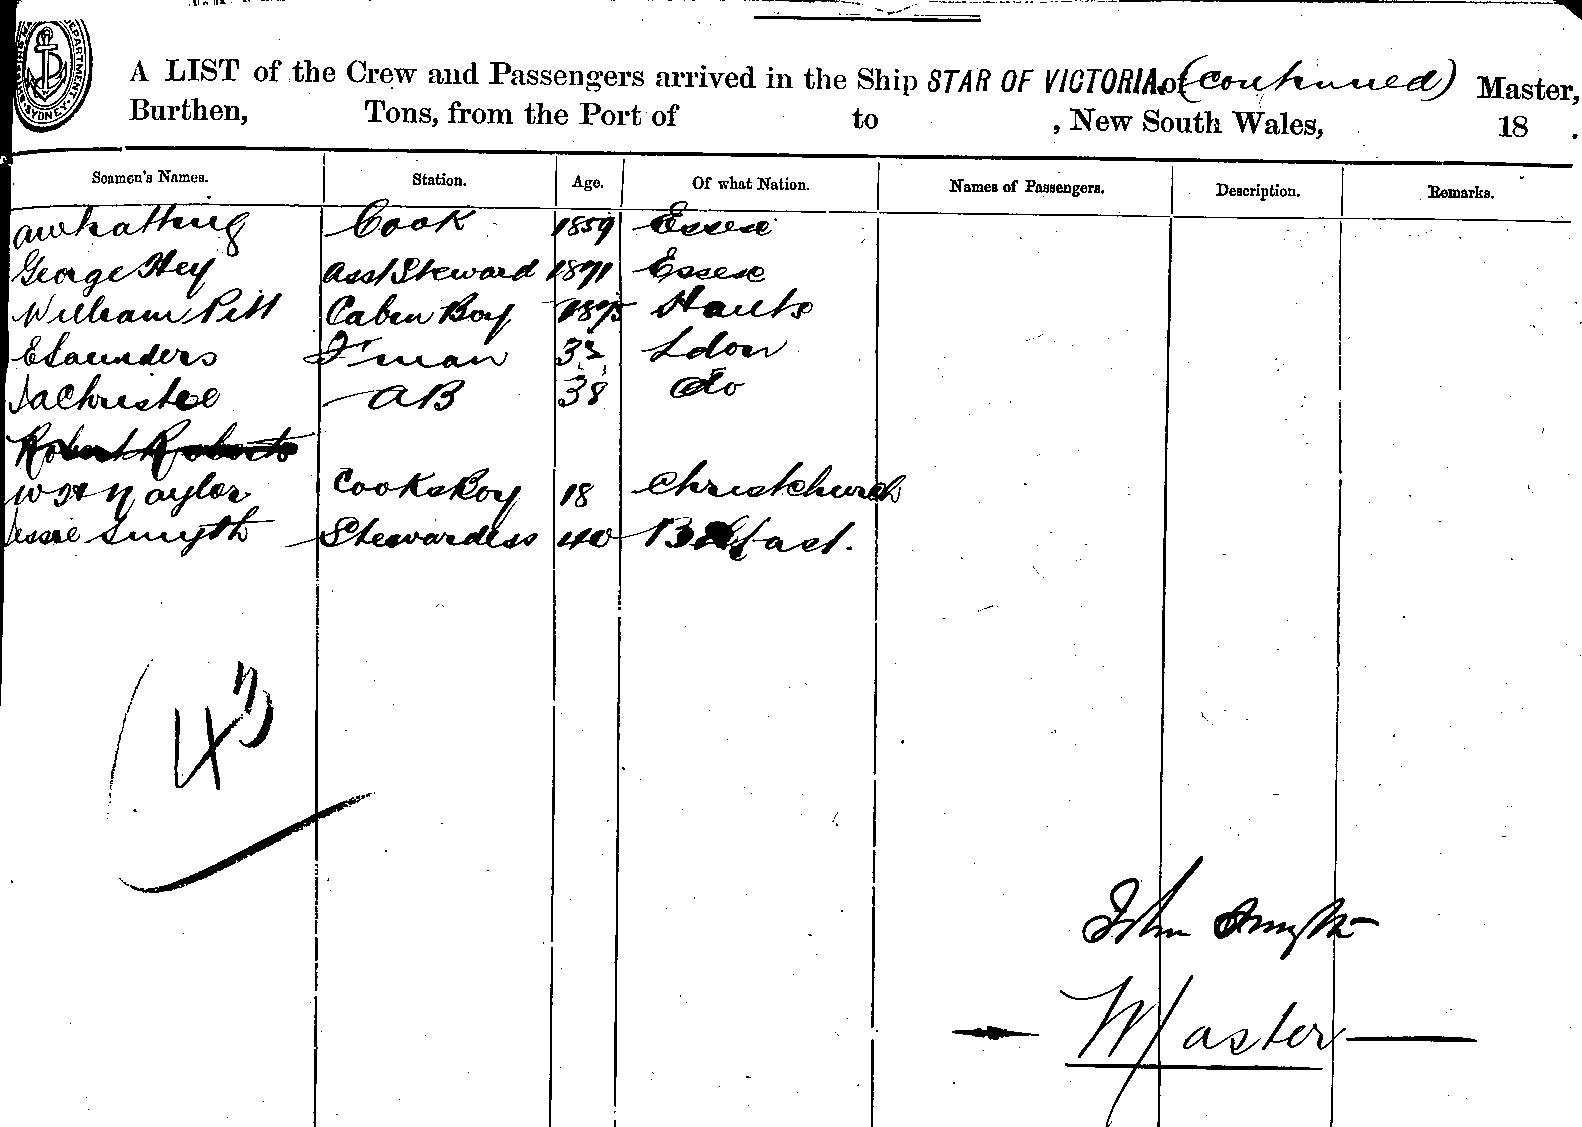 A LIST of the Crew and Passengers arrived in the Ship STAR OF VICTORIA of (continued) Master,
Burthen, Tons, from the Port of to , New South Wales, 18 .
Seamen's Names. Station. Age. Of what Nation. Names of Passengers. Description. Remarks.
Cook 1859 Essex
George Hey Asst Steward 1871 Essex
William Pitt Cabin Boy 1875 Hants
E Saunders F'man 32 Ldon
Christie AB 38 do
Robert Roberts
W H Naylor Cooks Boy 18 Christchurch
Jessie Smyth Stewardess 40 Belfast.
43
John Smyth
Master